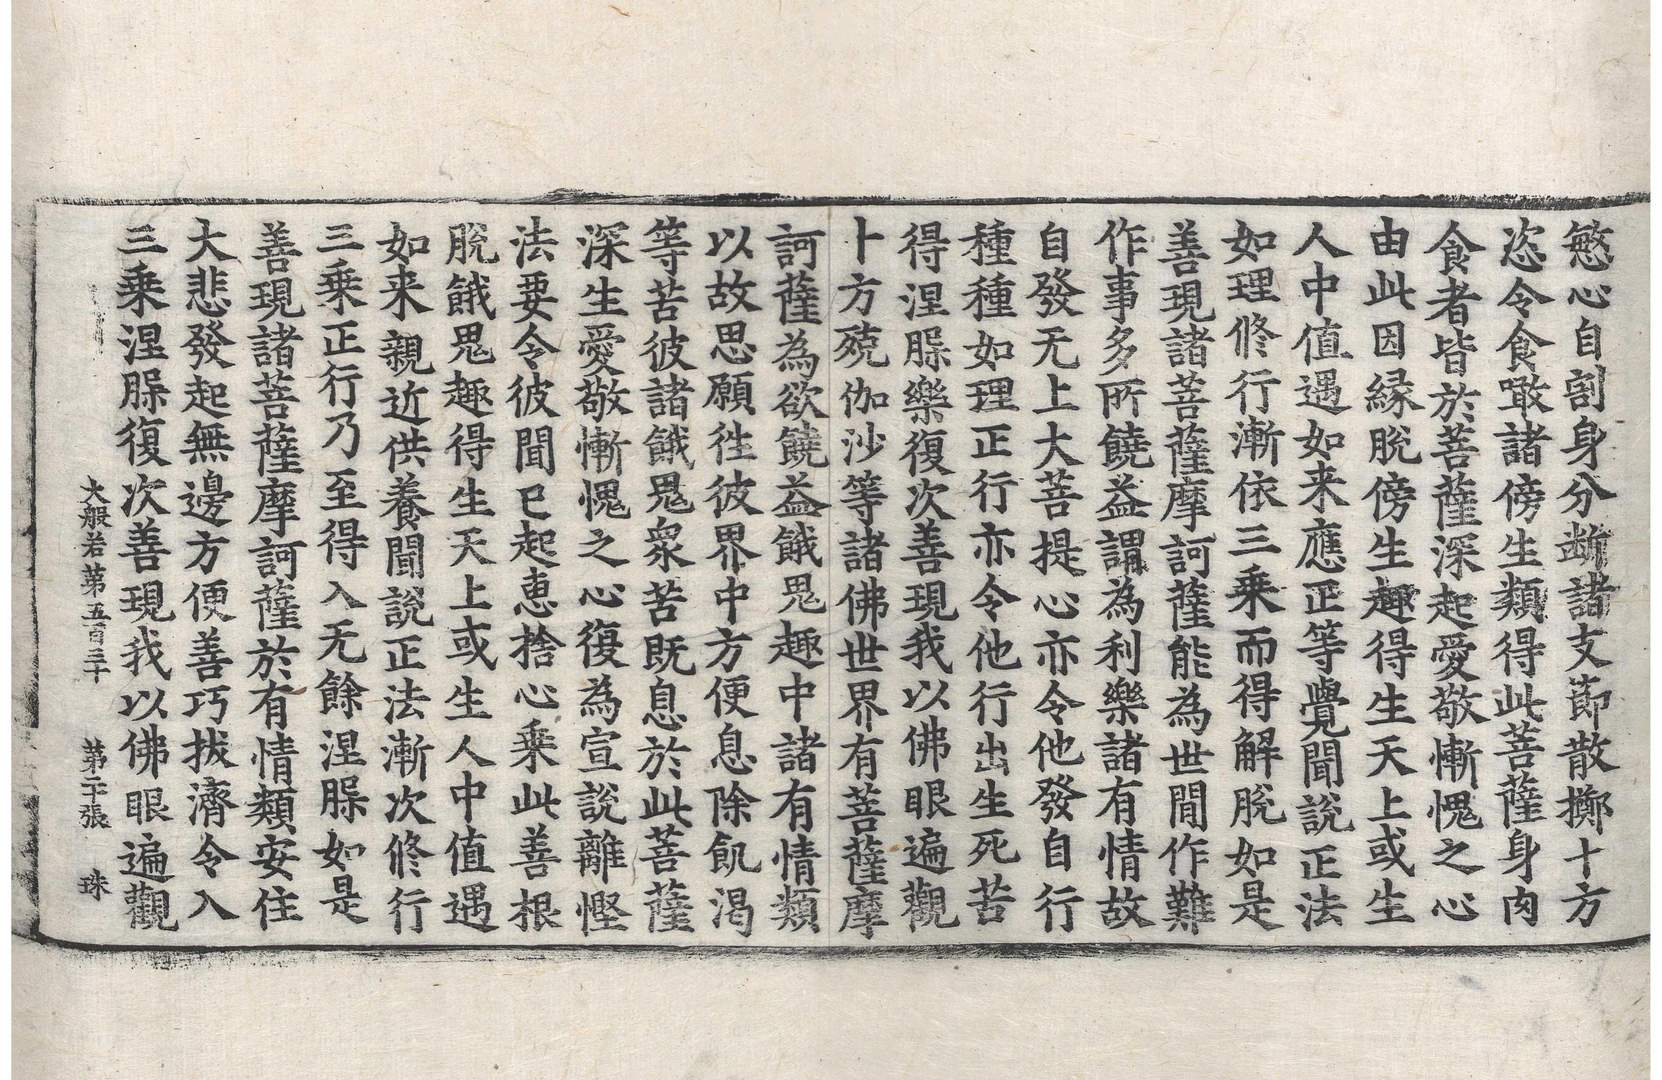 慜心自割身分断諸支節散擲十方
恣令食噉諸傍生類得此菩薩身肉
食者皆於菩薩深起愛敬慚愧之心
由此因縁脫傍生趣得生天上或生
人中值遇如来應正等覺聞說正法
如理修行漸依三乗而得解脫如是
善現諸菩薩摩訶薩能為世間作難
作事多所饒益謂為利樂諸有情故
自發无上大菩提心亦令他發自行
種種如理正行亦令他行出生死苦
得涅槃樂復次善現我以佛眼遍觀
卜方殑伽沙等諸佛世界有菩薩摩
訶薩為欲饒益餓鬼趣中諸有情類
以故思願徃彼界中方便息除飢渴
等苦彼諸餓鬼衆苦既息於此菩薩
深生愛敬慚愧之心復為宣說離慳
法要令彼聞已起恵捨心乗此善根
脫餓鬼趣得生天上或生人中值遇
如来親近供養聞說正法漸次修行
三乗正行乃至得入无餘涅槃如是
善現諸菩薩摩訶薩於有情類安住
大悲發起無邊方便善巧拔濟令入
三乗涅槃復次善現我以佛眼遍觀
大般若第五百三十 第二十張 珠